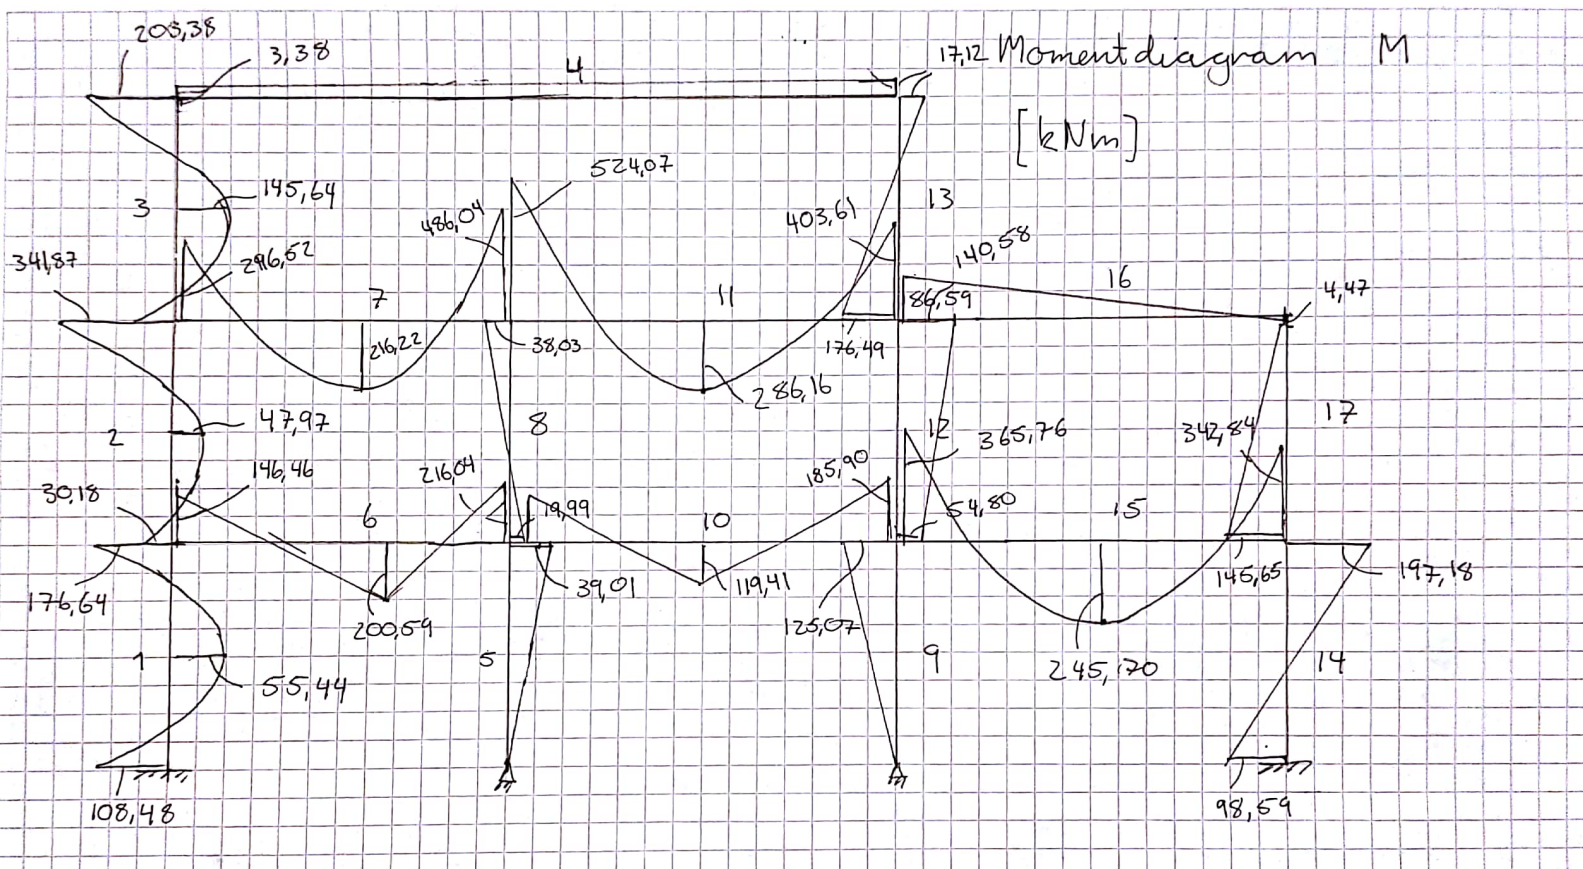 203,38
3,38
4
17,12 Momentdiagram M
[kNm]
524,07
145,64
3
486,04
403,61
13
140,58
341,87
296,52
7
11
86,59
16
4,47
216,22
38,03
176,49
286,16
8
17
47,97
2
12
365,76
342,84
146,46
216,04
185,90
30,18
6
19,99
10
54,80
15
176,64
39,01
119,41
145,65
197,18
200,59
125,07
1
5
9
245,170
14
55,44
108,48
98,59